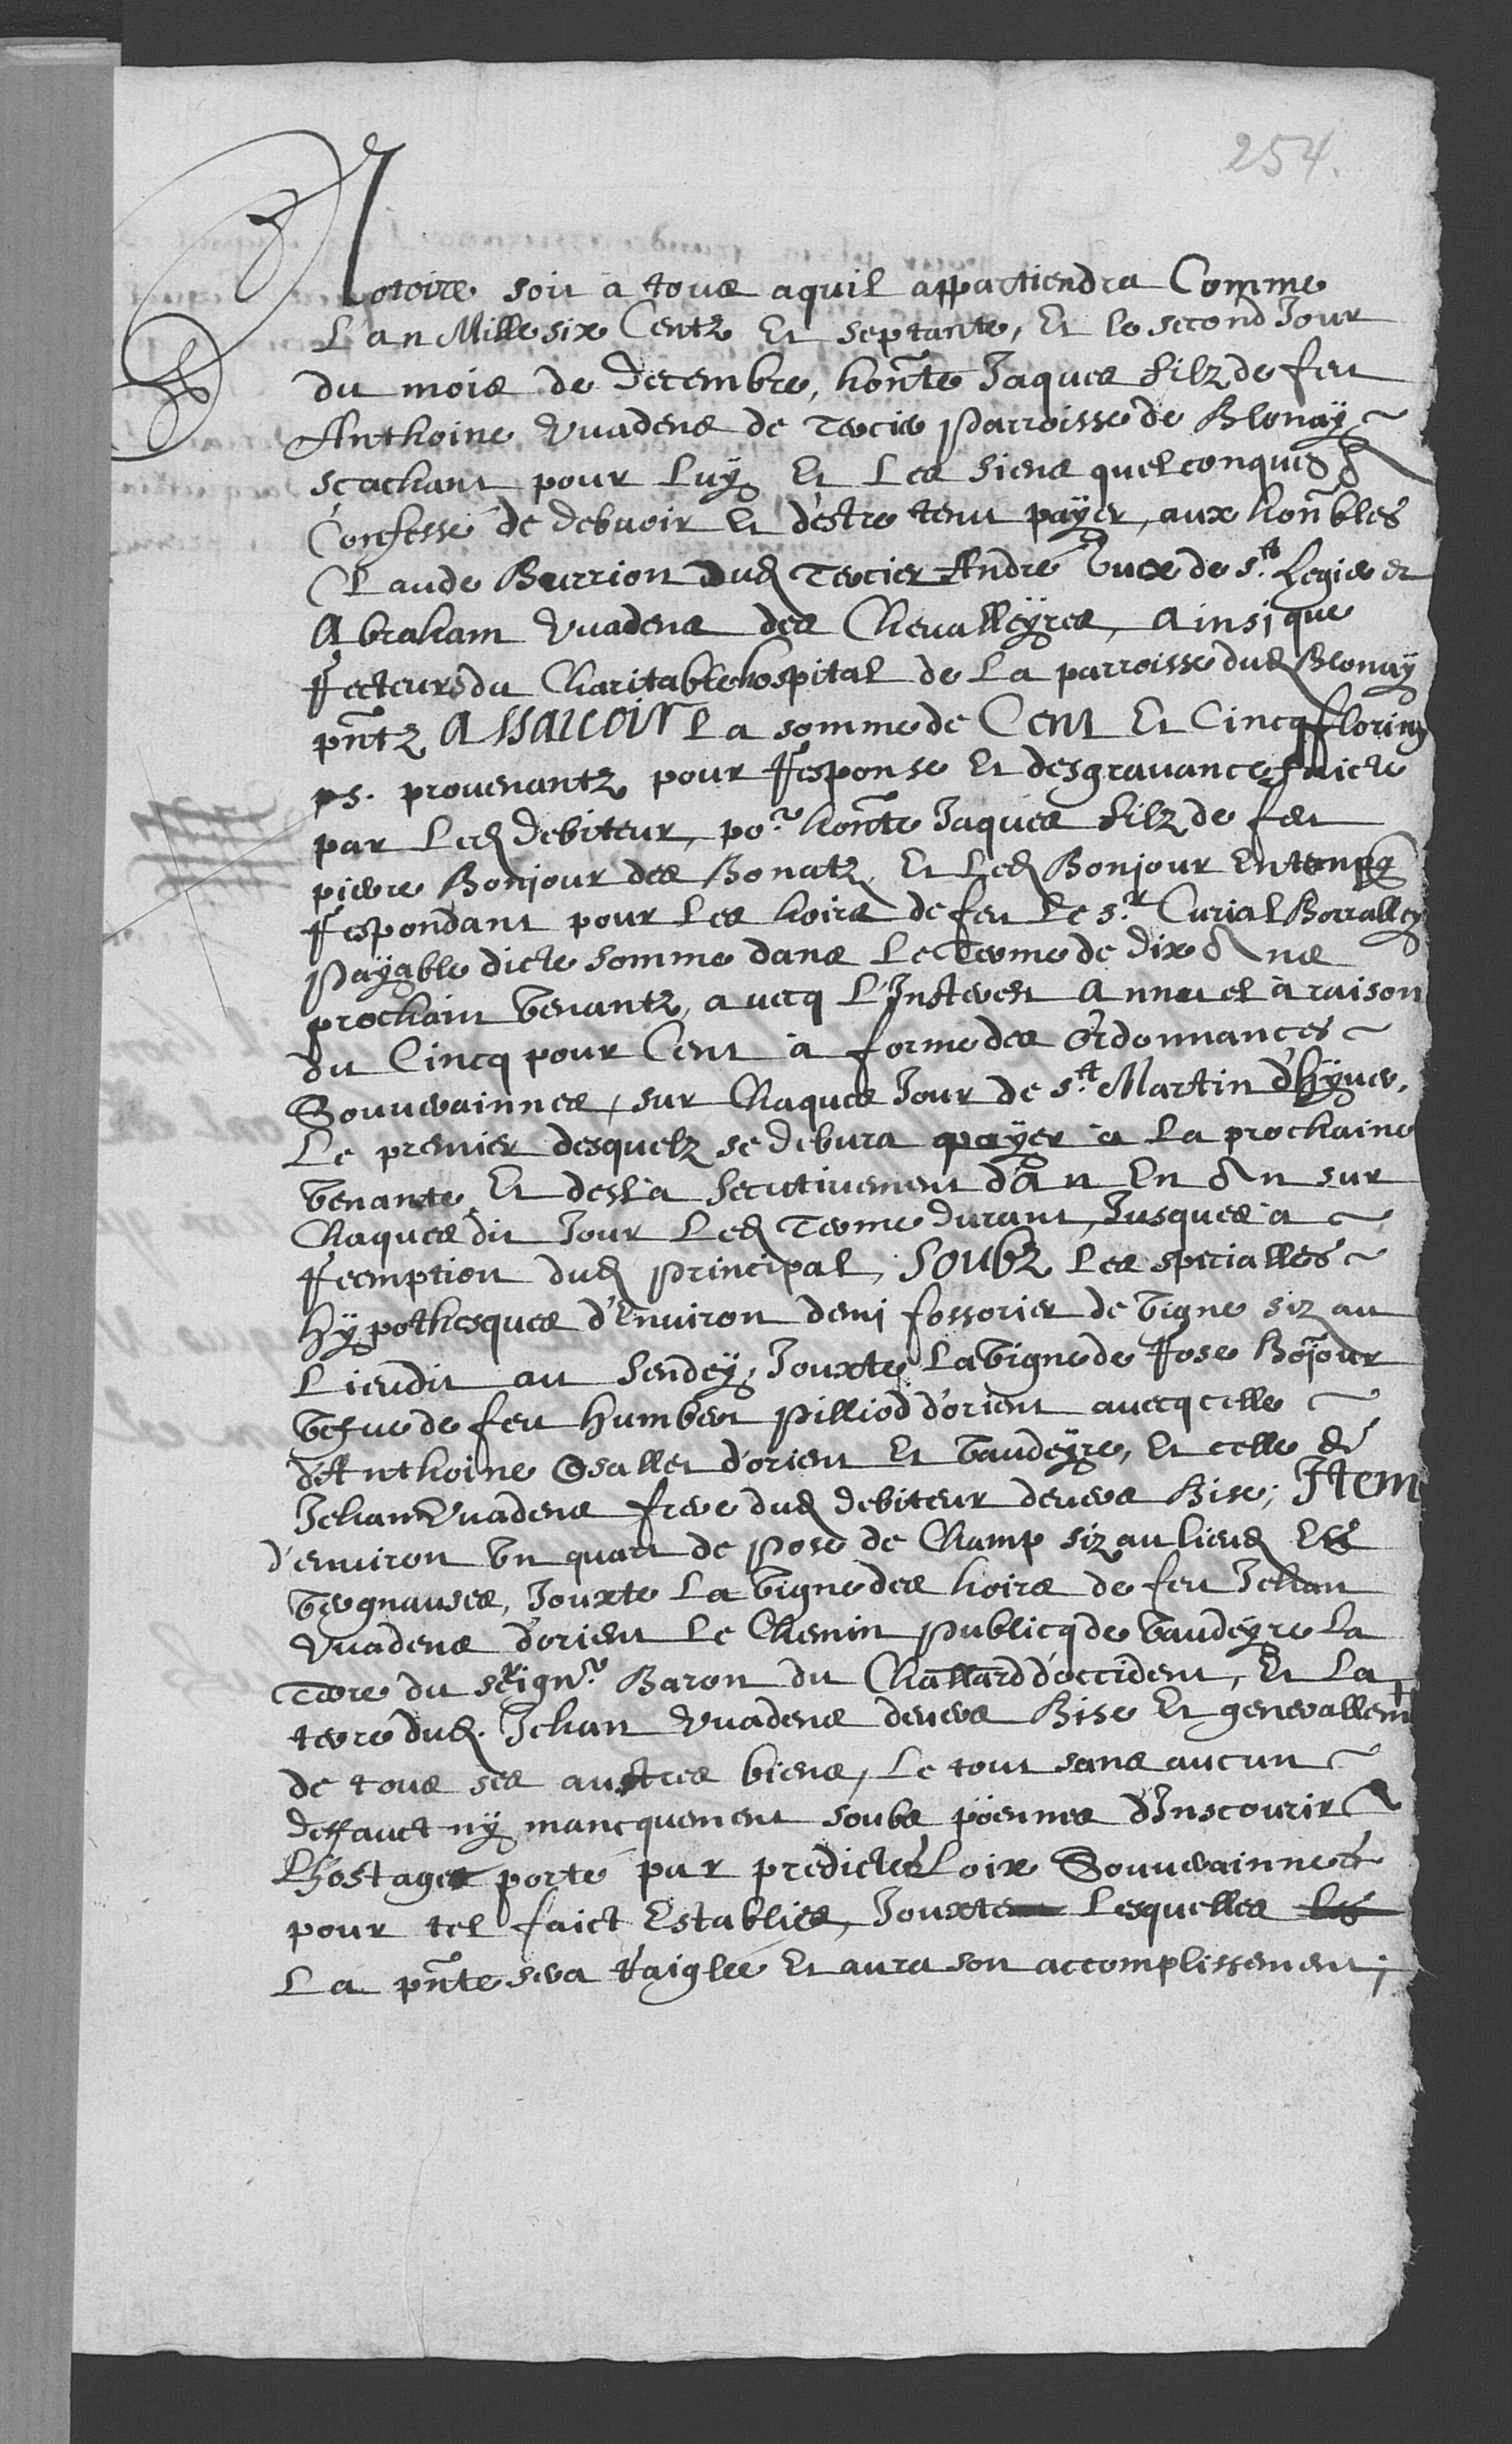 254.
Notoire soit à tous aquil appartiendra Comme
L'an Mille six Centz Et septante, Et le second Jour
du mois de Decembre, honn̄te Jaques filz de feu
Anthoine Vuadens de Tercie Parroisse de Blonaÿ
sçachant pour Luÿ Et Les siens quelconques
Confesse de debuoir Et d'estre tenu payer, aux honn̄bles
Claude Burrion dud Tercier André Ducx de s.t Legie et
Abraham Vuadens des Cheualleÿres, Ainsi que
Recteurs du Charitable hospital de La parroisse dud Blonaÿ
pn̄tz Assauoir La somme de Cent Et Cincq florins
ps. prouenantz pour Response Et desgravance faicte
par Led debiteur, po.r honn̄te Jaques filz de feu
pierre Bonjour des Bonatz Et Led Bonjour En temps
Respondant pour Les hoirs de feu Le s.r Curial Borralley
Payable dicte somme dans Le Terme de dix Ans
prochain Venantz, auecq L'Interest Annuel à raison
du Cincq pour Cent à forme des Ordonnances
Souuerainnes, sur Chaques Jour de s.t Martin d'Hÿuer,
Le premier desquelz se debura payer à La prochaine
Venante Et desla Secutiuement d'An En An sur
Chaques dit Jour Led Terme durant, Jusques à
Reemption dud Principal, Soubz Les specialles
Hÿpothesques d'Enuiron demi fossorier de Vigne siz au
Lieudit au Sendeÿ, Jouxte La Vigne de Rose Bojour
Vefue de feu Humbert Pilliod d'orient auecq celle
d'Anthoine Osallet d'orient Et Vaudeÿre, Et celle de
Jehan Vuadens frere dud debiteur deuers Bise; Item
d'enuiron Vn quart de Pose de Champ siz au lieud Es
Vergnauses, Jouxte La Vigne des hoirs de feu Jehan
Vuadens d'orient Le Chemin Publicq de Vaudeÿre La
Terre du seign.r Baron du Chastlard d'occident, Et La
terre dud. Jehan Vuadens deuers Bise Et generallemt
de tous ses austres biens, Le tout sans aucun
deffauct nÿ mancquement soubs pöennes d'Inscourir
L'hostage porté par predictes Loix Souuerainnes
pour tel faict Establies, Jouxte Lesquelles
La pn̄te sera Raiglee Et aura son accomplissement;